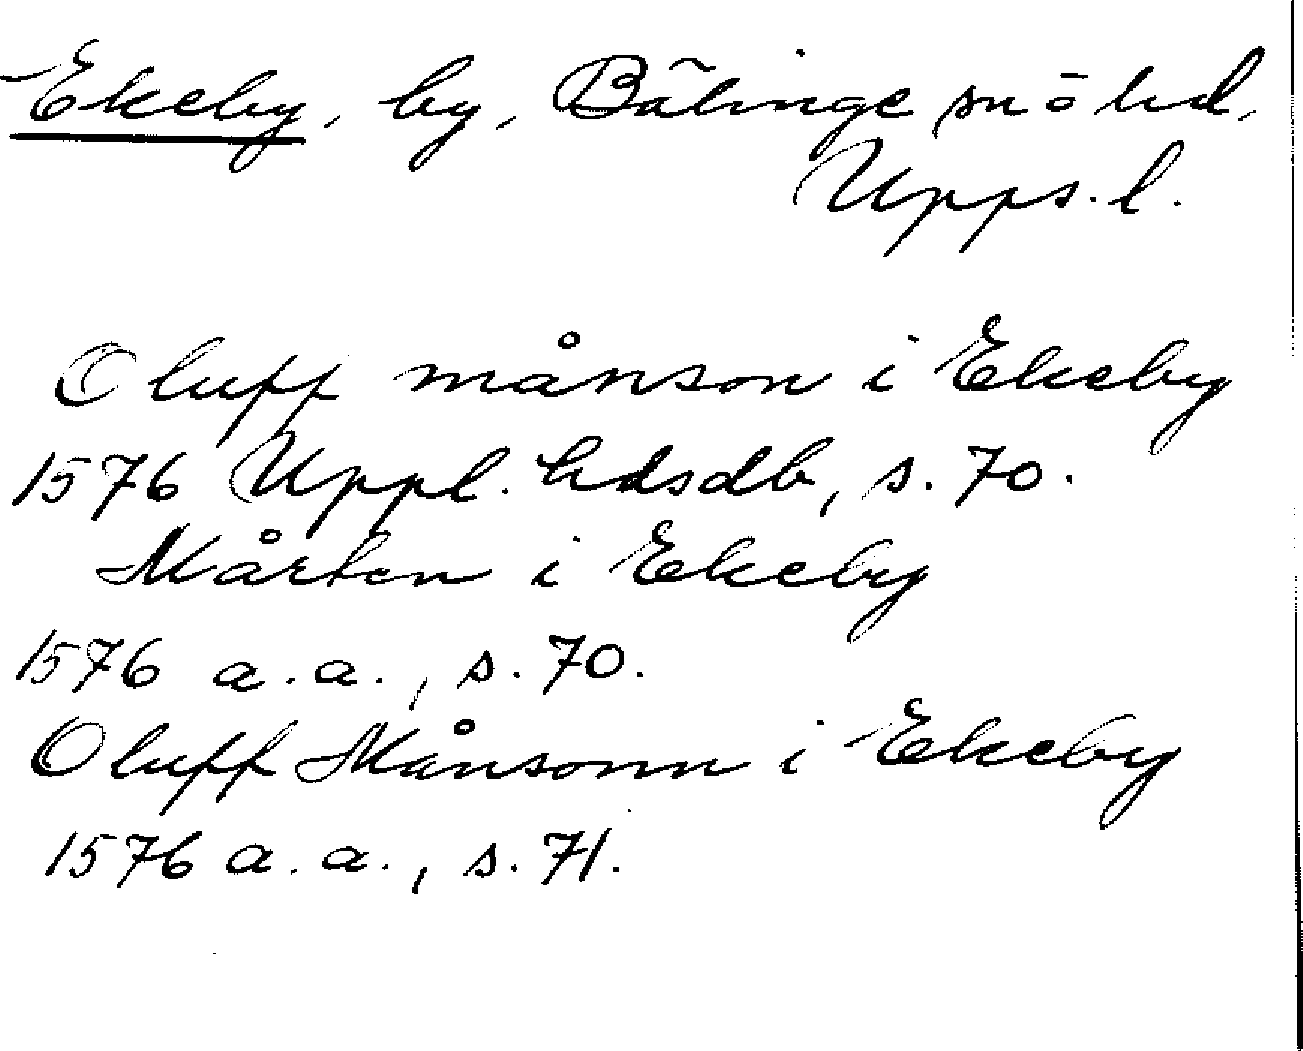 Ekeby, by, Bälinge sn ö hd,
Upps. l.
Oluff månson i Ekeby
1576 Uppl. hdsdb, s. 70.
Mårten i Ekeby
1576 a. a., s. 70.
Oluff Månsonn i Ekeby
1576 a. a., s. 71.